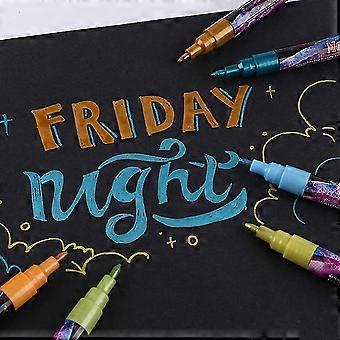 FRIDAY
night